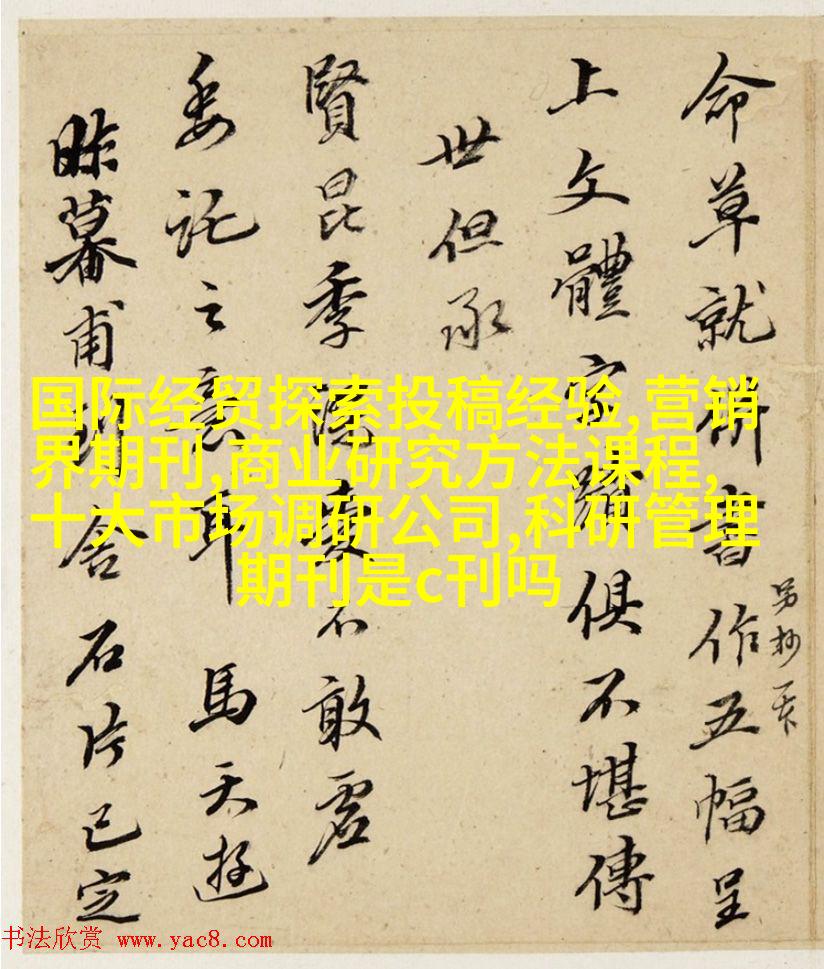 命草就併書作五幅呈
另抄一
上文體字蹟俱不堪傳
世但承
賢昆季愛不敢虛
委託之意耳 馬天游
昨暮甫舍石片已定
国际经贸探索投稿经验,营销
界期刊,商业研究方法课程,
十大市场调研公司,科研管理
期刊是c刊吗
书法欣赏 www.yac8.com